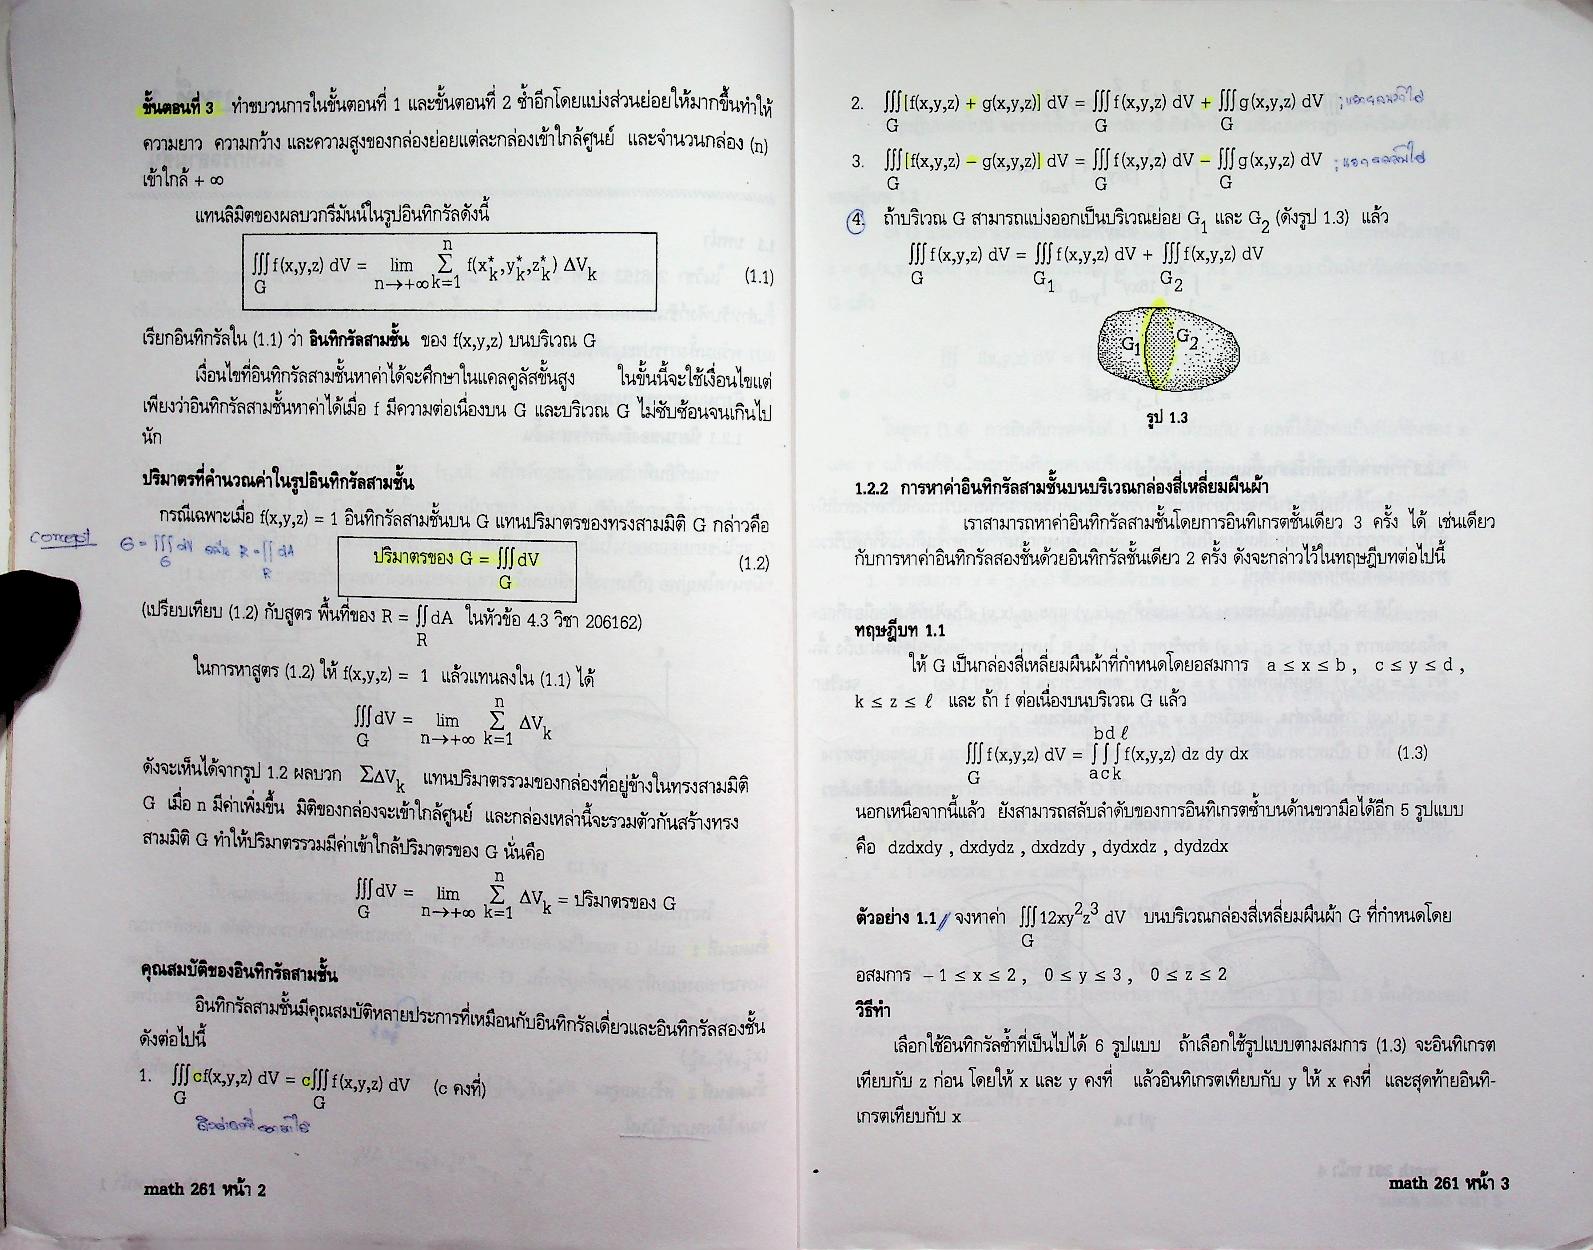 ขั้นตอนที่ 3 ทำขบวนการในขั้นตอนที่ 1 และขั้นตอนที่ 2 ซ้ำอีกโดยแบ่งส่วนย่อยให้มากขึ้นทำให้
ความยาว ความกว้าง และความสูงของกล่องย่อยแต่ละกล่องเข้าใกล้ศูนย์ และจำนวนกล่อง (n)
เข้าใกล้ + ∞
แทนลิมิตของผลบวกรีมันน์ในรูปอินทิกรัลดังนี้
n
∭ f(x,y,z) dV = lim Σ f(x*k,y*k,z*k) ΔVk (1.1)
G n→+∞ k=1
เรียกอินทิกรัลใน (1.1) ว่า อินทิกรัลสามชั้น ของ f(x,y,z) บนบริเวณ G
เงื่อนไขที่อินทิกรัลสามชั้นหาค่าได้จะศึกษาในแคลคูลัสขั้นสูง ในขั้นนี้จะใช้เงื่อนไขแต่
เพียงว่าอินทิกรัลสามชั้นหาค่าได้เมื่อ f มีความต่อเนื่องบน G และบริเวณ G ไม่ซับซ้อนจนเกินไป
นัก
ปริมาตรที่คำนวณค่าในรูปอินทิกรัลสามชั้น
กรณีเฉพาะเมื่อ f(x,y,z) = 1 อินทิกรัลสามชั้นบน G แทนปริมาตรของทรงสามมิติ G กล่าวคือ
concept G = ∭ dV R = ∬ dA
G R
ปริมาตรของ G = ∭ dV (1.2)
G
(เปรียบเทียบ (1.2) กับสูตร พื้นที่ของ R = ∬ dA ในหัวข้อ 4.3 วิชา 206162)
R
ในการหาสูตร (1.2) ให้ f(x,y,z) = 1 แล้วแทนลงใน (1.1) ได้
n
∭ dV = lim Σ ΔVk
G n→+∞ k=1
ดังจะเห็นได้จากรูป 1.2 ผลบวก ΣΔVk แทนปริมาตรรวมของกล่องที่อยู่ข้างในทรงสามมิติ
G เมื่อ n มีค่าเพิ่มขึ้น มิติของกล่องจะเข้าใกล้ศูนย์ และกล่องเหล่านี้จะรวมตัวกันสร้างทรง
สามมิติ G ทำให้ปริมาตรรวมมีค่าเข้าใกล้ปริมาตรของ G นั่นคือ
n
∭ dV = lim Σ ΔVk = ปริมาตรของ G
G n→+∞ k=1
คุณสมบัติของอินทิกรัลสามชั้น
อินทิกรัลสามชั้นมีคุณสมบัติหลายประการที่เหมือนกับอินทิกรัลเดี่ยวและอินทิกรัลสองชั้น
ดังต่อไปนี้
1. ∭ cf(x,y,z) dV = c∭ f(x,y,z) dV (c คงที่)
G G
math 261 หน้า 2
2. ∭ [f(x,y,z) + g(x,y,z)] dV = ∭ f(x,y,z) dV + ∭ g(x,y,z) dV
G G G
3. ∭ [f(x,y,z) − g(x,y,z)] dV = ∭ f(x,y,z) dV − ∭ g(x,y,z) dV
G G G
4. ถ้าบริเวณ G สามารถแบ่งออกเป็นบริเวณย่อย G1 และ G2 (ดังรูป 1.3) แล้ว
∭ f(x,y,z) dV = ∭ f(x,y,z) dV + ∭ f(x,y,z) dV
G G1 G2
G1 G2
รูป 1.3
1.2.2 การหาค่าอินทิกรัลสามชั้นบนบริเวณกล่องสี่เหลี่ยมผืนผ้า
เราสามารถหาค่าอินทิกรัลสามชั้นโดยการอินทิเกรตชั้นเดียว 3 ครั้ง ได้ เช่นเดียว
กับการหาค่าอินทิกรัลสองชั้นด้วยอินทิกรัลชั้นเดียว 2 ครั้ง ดังจะกล่าวไว้ในทฤษฎีบทต่อไปนี้
ทฤษฎีบท 1.1
ให้ G เป็นกล่องสี่เหลี่ยมผืนผ้าที่กำหนดโดยอสมการ a ≤ x ≤ b , c ≤ y ≤ d ,
k ≤ z ≤ ℓ และ ถ้า f ต่อเนื่องบนบริเวณ G แล้ว
b d ℓ
∭ f(x,y,z) dV = ∫ ∫ ∫ f(x,y,z) dz dy dx (1.3)
G a c k
นอกเหนือจากนี้แล้ว ยังสามารถสลับลำดับของการอินทิเกรตซ้ำบนด้านขวามือได้อีก 5 รูปแบบ
คือ dzdxdy , dxdydz , dxdzdy , dydxdz , dydzdx
ตัวอย่าง 1.1 จงหาค่า ∭ 12xy²z³ dV บนบริเวณกล่องสี่เหลี่ยมผืนผ้า G ที่กำหนดโดย
G
อสมการ − 1 ≤ x ≤ 2 , 0 ≤ y ≤ 3 , 0 ≤ z ≤ 2
วิธีทำ
เลือกใช้อินทิกรัลซ้ำที่เป็นไปได้ 6 รูปแบบ ถ้าเลือกใช้รูปแบบตามสมการ (1.3) จะอินทิเกรต
เทียบกับ z ก่อน โดยให้ x และ y คงที่ แล้วอินทิเกรตเทียบกับ y ให้ x คงที่ และสุดท้ายอินทิ-
เกรตเทียบกับ x
math 261 หน้า 3